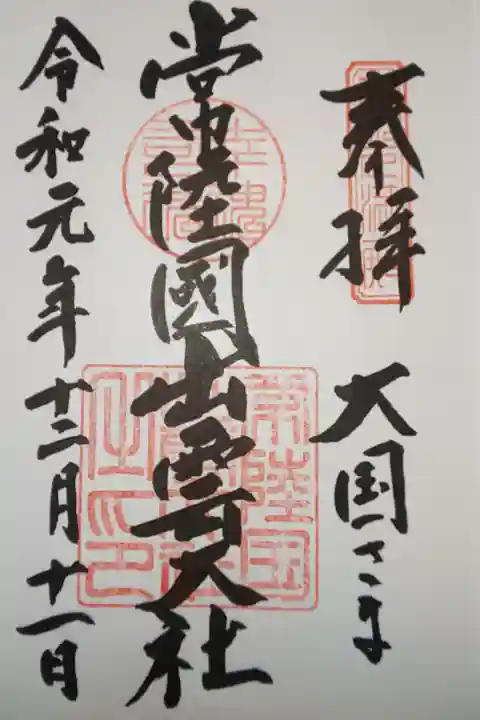 奉拝
大国さま
常陸國出雲大社
令和元年十二月十一日